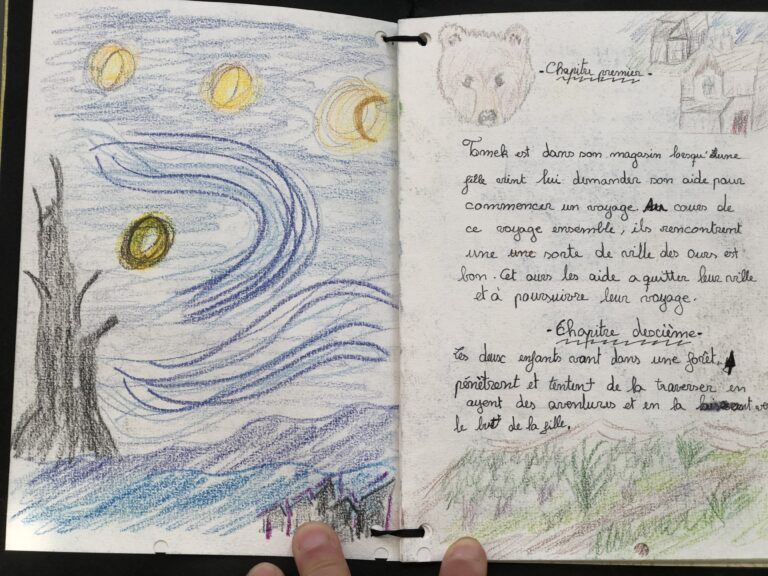 - Chapitre premier -
Tomek est dans son magasin lorsqu'une
fille vient lui demander son aide pour
commencer un voyage. Au cours de
ce voyage ensemble, ils rencontrent
une une sorte de ville des ours est
bon. Cet ours les aide a quitter leur ville
et à poursuivre leur voyage.
- Chapitre deuxième -
Les deux enfants vont dans une forêt,
pénètrent et tentent de la traverser en
ayent des aventures et en la
le but de la fille.